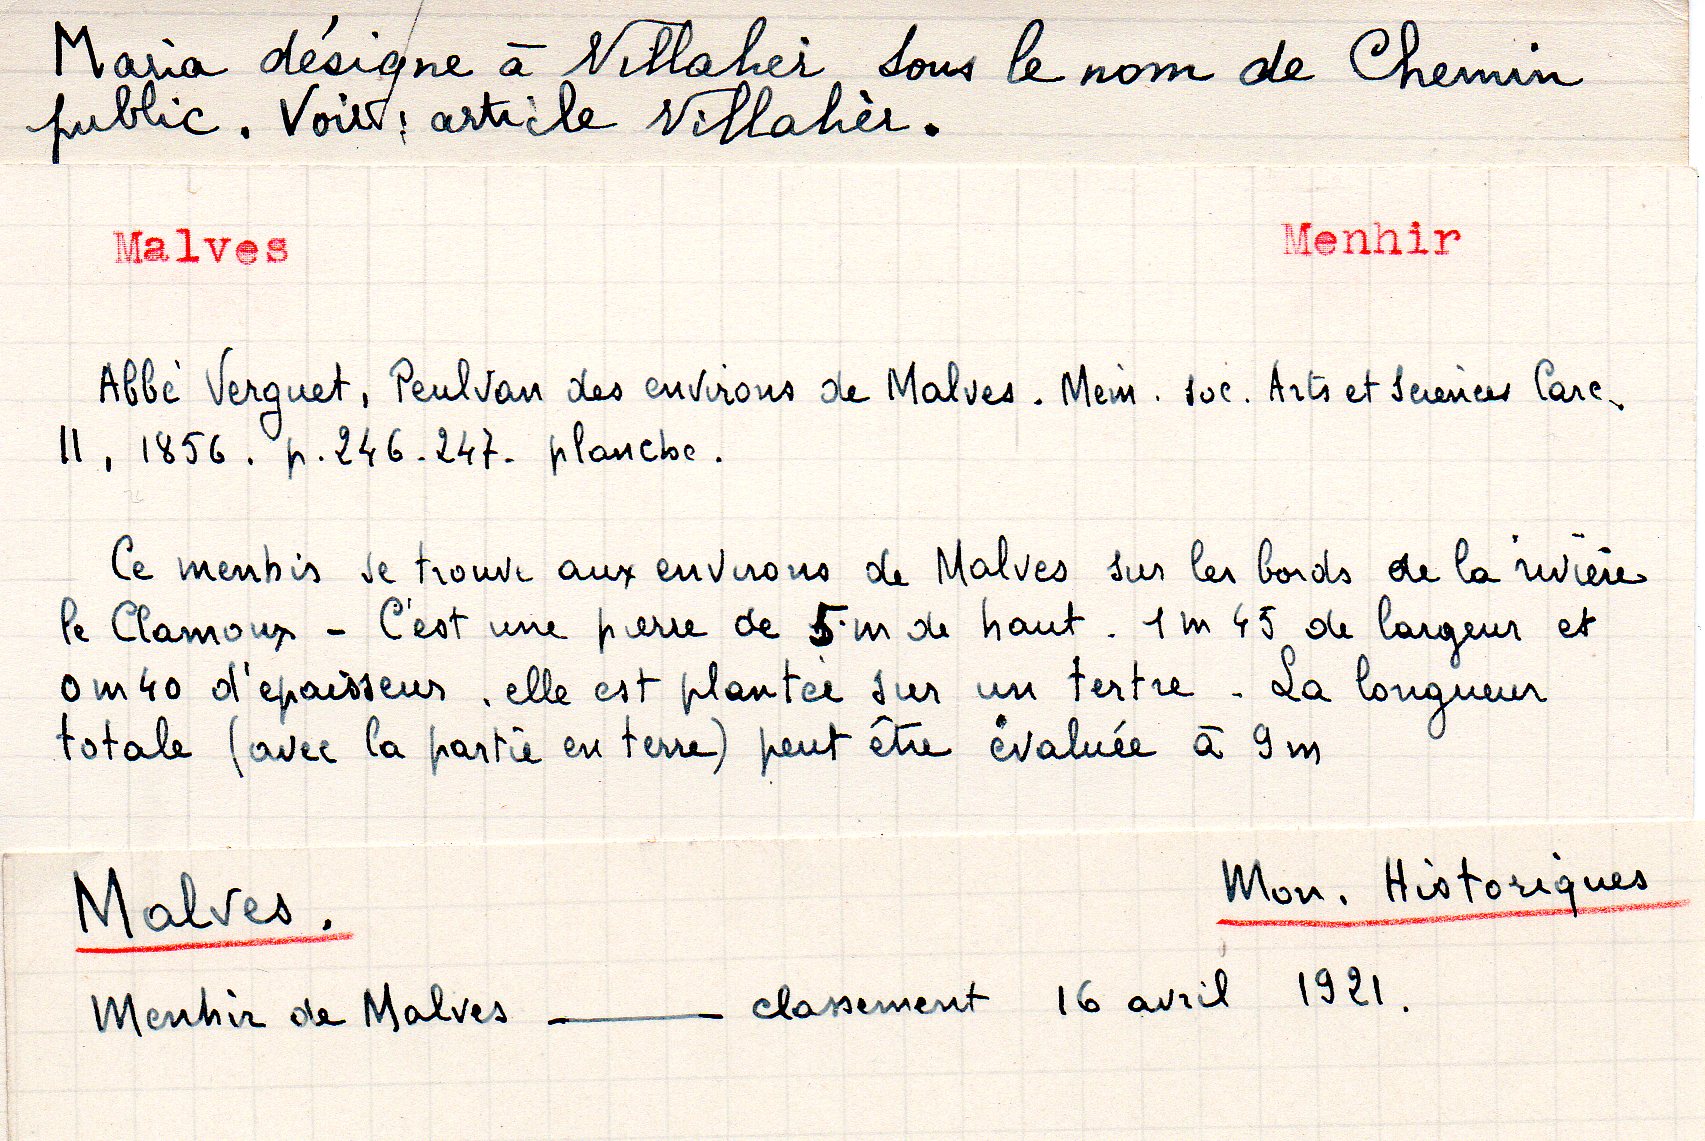 Maria désigne à Villahér sous le nom de Chemin
public. Voir: article Villahèr.
Malves Menhir
Abbé Verguet, Peulvan des environs de Malves. Mém. Soc. Arts et Sciences Carc.
II, 1856. p. 246-247. planche.
Ce menhir se trouve aux environs de Malves sur les bords de la rivière
le Clamoux - C'est une pierre de 5 m de haut. 1 m 45 de largeur et
0 m 40 d'épaisseur. elle est plantée sur un tertre - La longueur
totale (avec la partie en terre) peut être évaluée à 9 m
Malves. Mon. Historiques
Menhir de Malves ——— classement 16 avril 1921.